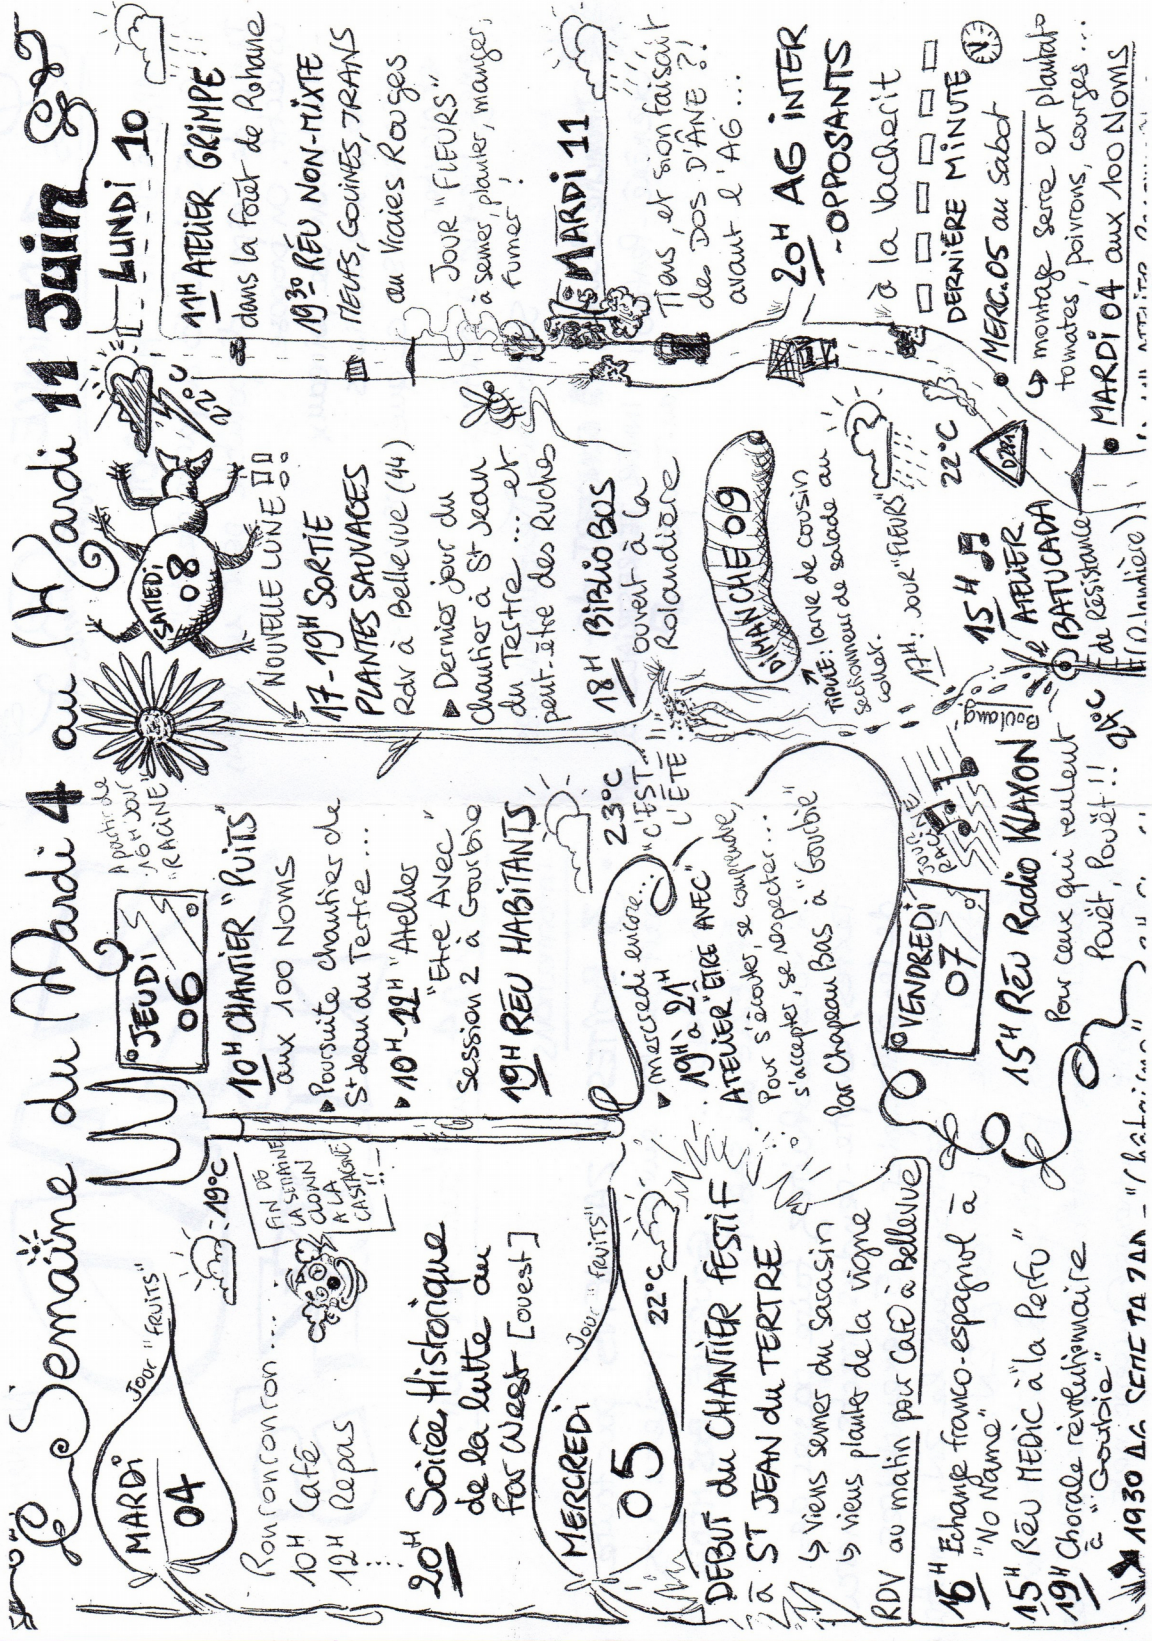 Semaine du Mardi 4 au Mardi 11 Juin
MARDi
04
Jour "FRUiTS"
19°C
Ronronronron....
10H Café
12H Repas
FiN DE
LA SEMAiNE
CLOWN
A LA
CASTAGNE
!!
20H Soirée Historique
de la lutte au
far West [ouest]
MERCREDi
05
Jour "FRUiTS"
22°C
DEBUT du CHANTiER FESTiF
à ST JEAN du TERTRE
↳ Viens semer du Sarasin
↳ viens planter de la vigne
RDV au matin pour Café à Bellevue
16H Echange franco-espagnol à
"No Name"
15H Réu MEDiC à "la Perfu"
19H Chorale révolutionnaire
à "Gourbie"
JEUDi
06
A partir de
16H Jour
"RACiNE"
10H CHANTiER "PUiTS"
aux 100 NOMS
▶ Poursuite chantier de
St Jean du Tertre....
▶ 10H-12H "Atelier
"Etre Avec"
Session 2 à Gourbie
19H RÉU HABiTANTS
23°C
▶ mercredi encore...
19H à 21H
ATELiER "ÊTRE AVEC"
Pour s'écouter, se comprendre,
s'accepter, se respecter....
Par Chapeau Bas à "Gourbie"
"C'EST
L'ÉTÉ"!!
VENDREDi
07
JOUR
RACiNE
15H RÉU Radio KLAXON
Pour ceux qui veulent
Pouët, Pouët!!
21°C
SAMEDi
08
22°C
NOUVELLE LUNE!!
17-19H SORTiE
PLANTES SAUVAGES
Rdv à Bellevue (44)
▶ Dernier jour du
chantier à St Jean
du Tertre... et
peut-être des Ruches
18H BiBLiOBUS
ouvert à la
Rolandière
DiMANCHE 09
TiPULE: larve de cousin
sectionneur de salade au
collet.
17H: Jour "FLEURS"
22°C
15H
ATELiER
BATUCADA
de Résistance
(Rolandière)
D281
LUNDi 10
11H ATELiER GRiMPE
dans la forêt de Rohane
19H30 RÉU NON-MiXTE
MEUFS, GOUiNES, TRANS
au Vraies Rouges
JOUR "FLEURS"
à semer, planter, manger,
fumer!
MARDi 11
Tiens, et si on faisait
des DOS D'ÂNE?!
avant l'AG...
20H AG iNTER
-OPPOSANTS
à la Vacherit
DERNiÈRE MiNUTE
• MERC.05 au Sabot
↳ montage serre et plantato
tomates, poivrons, courges...
• MARDi 04 aux 100 Noms